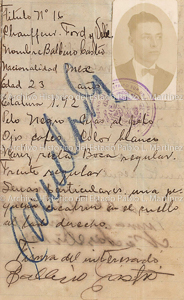 Título Nº 16
Chauffeur. Ford y
Nombre Balbino Castro
Nacionalidad Mex
Edad 23 años
Estatura 1.42
Pelo Negro
Ojos cafés Color blanco
Nariz recta Boca regular.
Frente regular
Señas particulares, una pe
cicatriz en el cuello
al lado derecho.
Firma del interesado
Balbino Castro
Cancelado